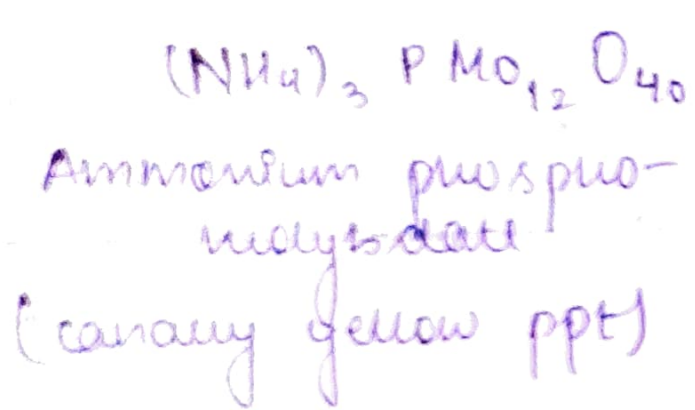 (NH₄)₃ PMo₁₂ O₄₀
Ammonium phospho-
molybdate
(canary yellow ppt)